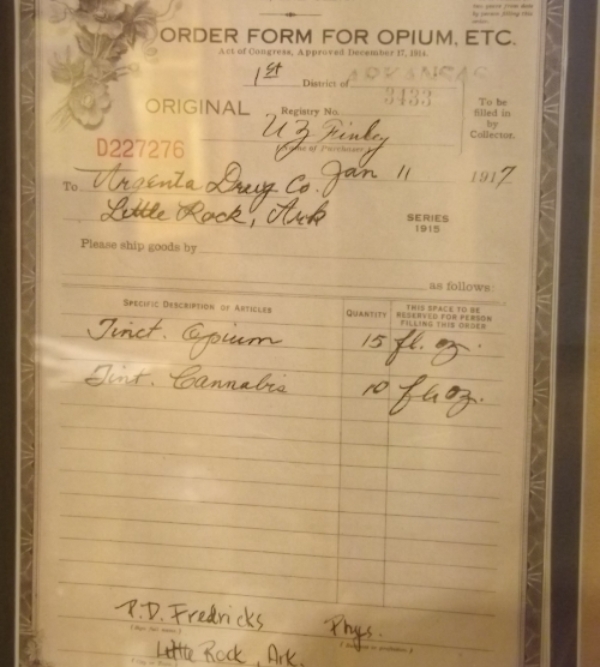 ORDER FORM FOR OPIUM, ETC.
Act of Congress, Approved December 17, 1914.
1st District of ARKANSAS
ORIGINAL Registry No. 3433
To be filled in by Collector.
D227276 U Z Finley
(Name of Purchaser)
To Argenta Drug Co. Jan 11 1917
Little Rock, Ark
SERIES 1915
Please ship goods by
as follows:
SPECIFIC DESCRIPTION OF ARTICLES QUANTITY THIS SPACE TO BE RESERVED FOR PERSON FILLING THIS ORDER
Tinct. Opium 15 fl. oz.
Tint. Cannabis 10 fl oz.
P.D. Fredricks Phys.
Little Rock, Ark.